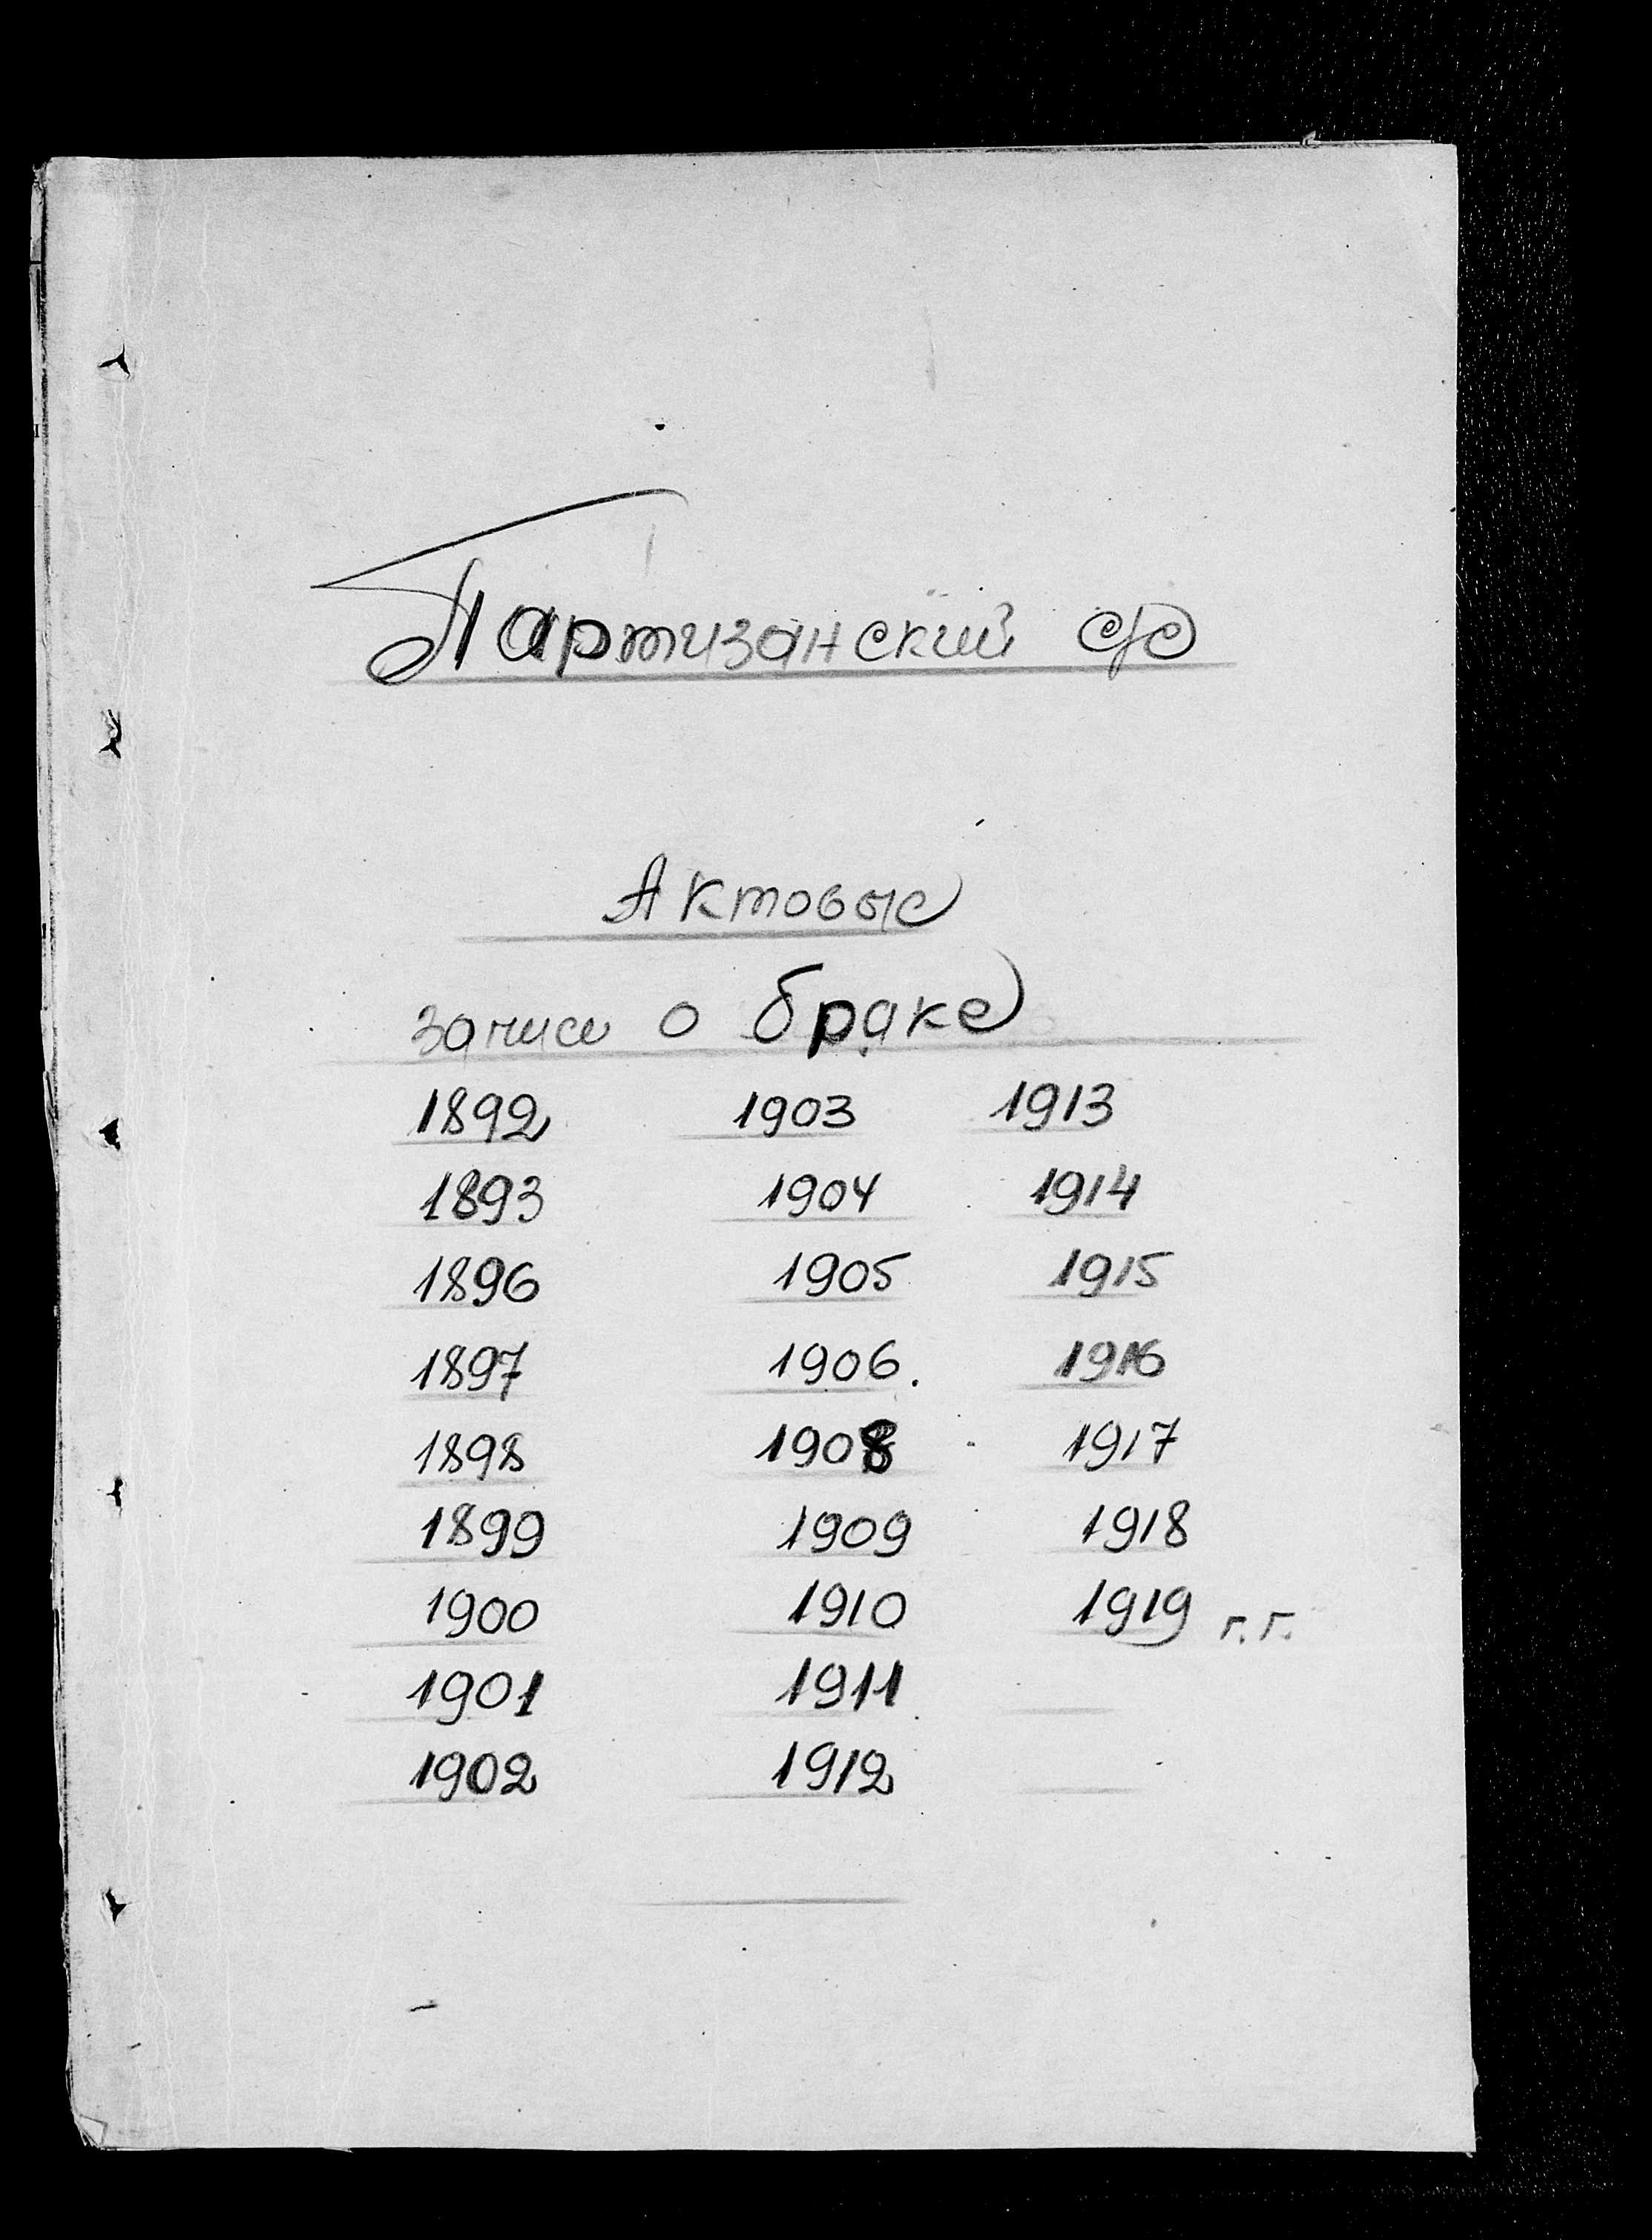 Партизанский с/с
Актовые
записи о браке
1892 1903 1913
1893 1904 1914
1896 1905 1915
1897 1906. 1916
1898 1908 1917
1899 1909 1918
1900 1910 1919 г.г.
1901 1911
1902 1912